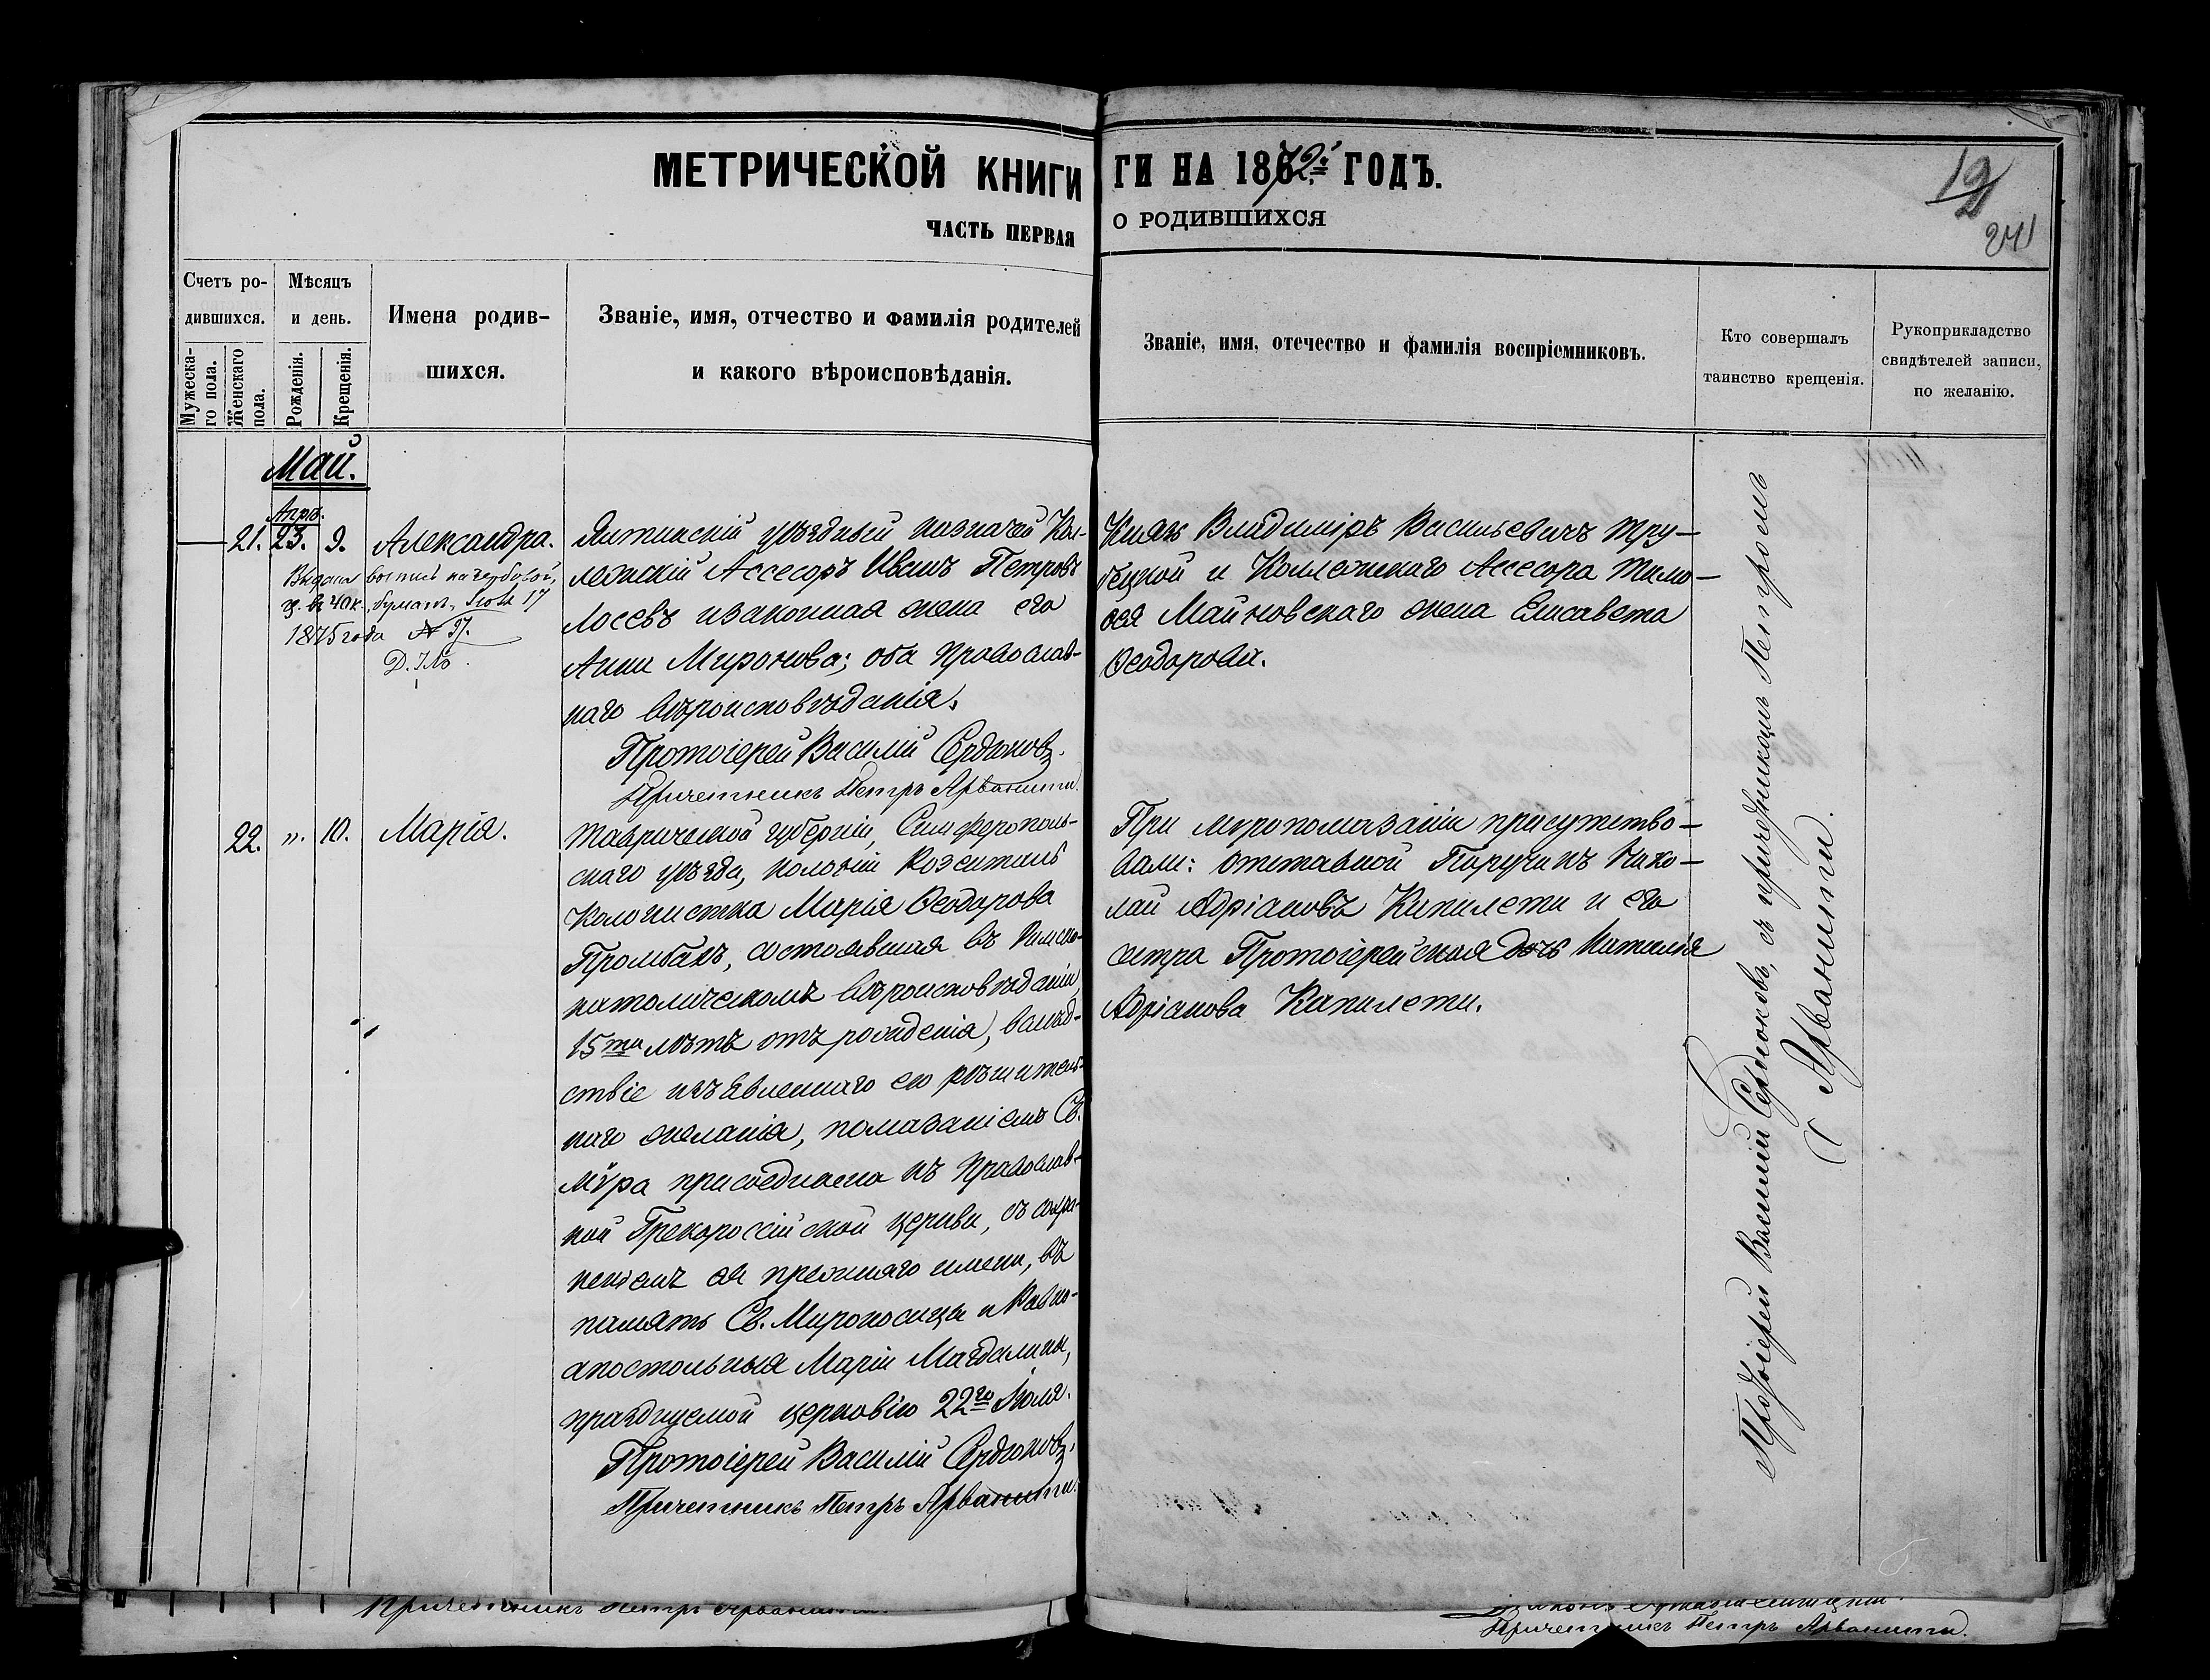 МЕТРИЧЕСКОЙ КНИГИ
ГИ НА 1872й ГОДЪ.
19
241
ЧАСТЬ ПЕРВАЯ
О РОДИВШИХСЯ
Счетъ ро-
дившихся.
Мужеска-
го пола.
Женскаго
пола.
Мѣсяцъ
и день.
Рожденія.
Крещенія.
Имена родив-
шихся.
Званіе, имя, отчество и фамилія родителей
и какого вѣроисповѣданія.
Званіе, имя, отечество и фамилія воспріемниковъ.
Кто совершалъ
таинство крещенія.
Рукоприкладство
свидѣтелей записи,
по желанію.
Май.
Апрѣ.
21. 23. 9. Александра.
1875 года № 37.
Ялтинскій уѣздный казначей Кол-
лежскій Ассесоръ Иванъ Петровъ
Лосевъ и законная жена его
Анна Миронова; оба православ-
наго вѣроисповѣданія.
Протоіерей Василій Сердюковъ.
Причетникъ Петръ Арванити.
Князь Владиміръ Васильевичъ Тру-
бецкой и Коллежскаго Ассесора Тимо-
ѳея Майновскаго жена Елисавета
Ѳеодорова.
22. „. 10. Марія.
Таврической губерніи, Симферополь-
скаго уѣзда, колоніи Розенталь
колонистка Марія Ѳеодорова
Громбахъ, состоявшая въ Римско-
католическомъ вѣроисповѣданіи,
15ти лѣтъ отъ рожденія, вслѣд-
ствіе изъявленнаго ею рѣшитель-
наго желанія, помазаніемъ Св.
Мѵра присоединена къ Православ-
ной Грекороссійской церкви, съ сохра-
неніемъ ея прежняго имени, въ
память Св. Мироносицы и Равно-
апостольныя Маріи Магдалины,
празднуемой церковію 22го Іюля.
Протоіерей Василій Сердюковъ.
Причетникъ Петръ Арванити.
При мѵропомазаніи присутство-
вали: отставной Поручикъ Нико-
лай Адріановъ Капилети и его
сестра Протоіерейская дочь Наталія
Адріанова Капилети.
Протоіерей Василій Сердюковъ, съ причетникомъ Петромъ
Арванити.
Причетникъ Петръ Арванити.
Причетникъ Петръ Арванити.